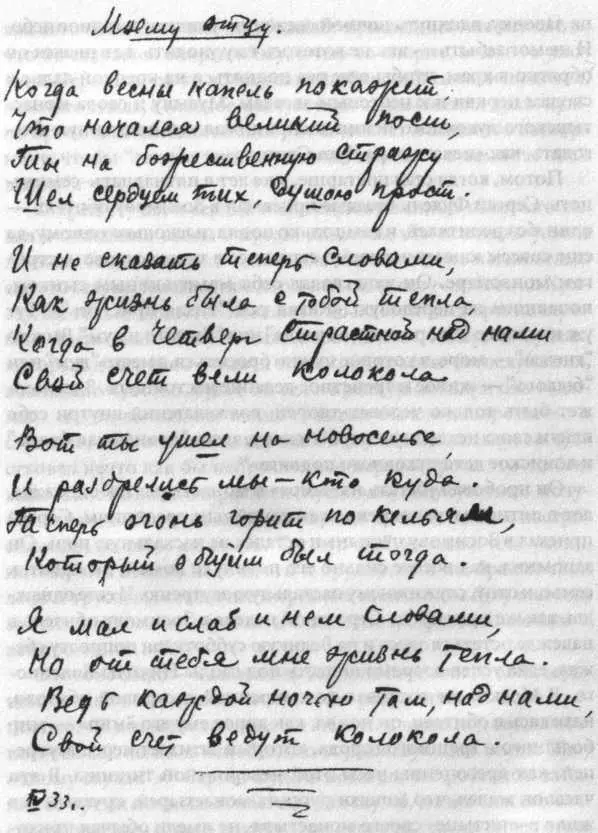 Моему отцу.
Когда весны капель покажет
Что начался великий пост,
Ты на божественную стражу
Шел сердцем тих, душою прост.
И не сказать теперь словами,
Как жизнь была с тобой тепла,
Когда в Четверг Страстной над нами
Свой счет вели колокола.
Вот ты ушел на новоселье,
И разбрелись мы — кто куда.
Теперь огонь горит по кельям,
Который общим был тогда
Я мал и слаб и нем словами,
Но от тебя мне жизнь тепла.
Ведь каждой ночью там, над нами,
Свой счет ведут колокола
IV 33..